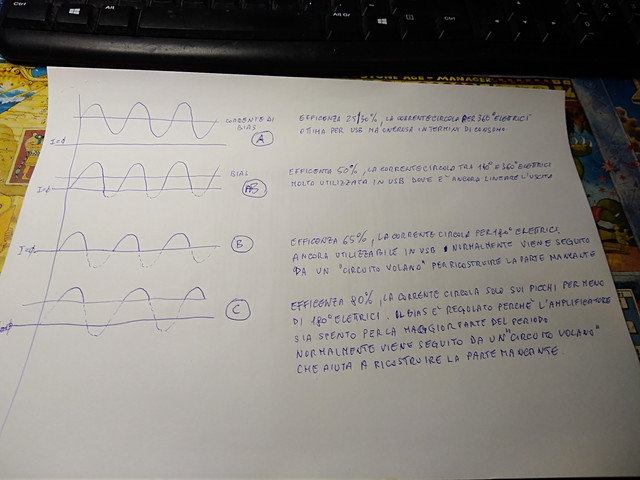 Ctrl
Alt
Alt Gr
Ctrl
STONE AGE - MANAGER
CORRENTE DI
BIAS
I=0
A
EFFICENZA 25/30%, LA CORRENTE CIRCOLA PER 360° ELETTRICI
OTTIMA PER USB MA ONEROSA IN TERMINI DI CONSUMO
BIAS
I=0
AB
EFFICENZA 50%, LA CORRENTE CIRCOLA TRA 180° E 360° ELETTRICI
MOLTO UTILIZZATA IN USB DOVE E' ANCORA LINEARE L'USCITA
I=0
B
EFFICENZA 65%, LA CORRENTE CIRCOLA PER 180° ELETTRICI.
ANCORA UTILIZZABILE IN USB. NORMALMENTE VIENE SEGUITO
DA UN "CIRCUITO VOLANO" PER RICOSTRUIRE LA PARTE MANCANTE
C
EFFICENZA 80%, LA CORRENTE CIRCOLA SOLO SUI PICCHI PER MENO
DI 180° ELETTRICI. IL BIAS E' REGOLATO PERCHE' L'AMPLIFICATORE
SIA SPENTO PER LA MAGGIOR PARTE DEL PERIODO
NORMALMENTE VIENE SEGUITO DA UN "CIRCUITO VOLANO"
CHE AIUTA A RICOSTRUIRE LA PARTE MANCANTE.